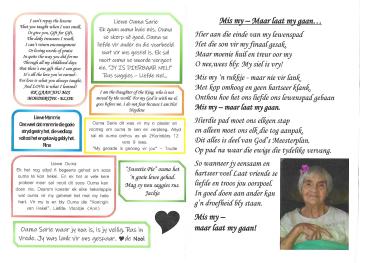 I can't repay the lessons
That you taught when I was small,
Or give you, Gift for Gift,
The daily treasures I recall.
I can't return encouragement
Or loving words of praise
In quite the way you did for me
Through all my childhood days.
But there's one gift that I can give
It's all the love you've earned
For love is what you always taught
And LOVE is what I learned!
Liewe Ouma Sarie
Ek gaan ouma baie mis. Ouma
liefde vir ander en die voorbeeld
wat vir ons gestel is. Ek sal
moet ouma se woorde vergeet
nie. "JY IS DIERBAAR NE!!"
Rus saggies - Liefde nel..
I am the daughter of the King, who is not
moved by the world. For my God is with me &
goes before me. I do not fear because I am His!
Liewe Mammie
Rina
Ouma Sarie dit was vir my 'n plesier en
voorreg om ouma te ken en te versorg. Altyd
sal ek ouma onthou as ek 2Korintiërs 12
vers 9 lees.
"My genade is genoeg vir jou" - Toutie
Liewe Ouma
"Sweetie Pie" ouma het
'n goeie lewe gehad.
Mag sy nou saggies rus
Jackie
Ouma Sarie waar jy nou is, is jy veilig. Rus in
Vrede. Jy was lank vir ons gespaar. ♥de Noel
Mis my – Maar laat my gaan…
Hier aan die einde van my lewenspad
Het die son vir my finaal gesak,
Maar moenie huil en treur oor my
O nee, wees bly: My siel is vry!
Mis my 'n rukkie - maar nie vir lank
Met kop omhoog en geen hartseer klank,
Onthou hoe het ons liefde ons lewenspad gebaan
Mis my – maar laat my gaan.
Hierdie pad moet ons elkeen stap
en alleen moet ons elk die tog aanpak,
Dit alles is deel van God's Meesterplan,
Op pad na waar die ewige die tydelike vervang.
So wanneer jy eensaam en
hartseer voel Laat vriende se
liefde en troos jou oorspoel.
In goed doen aan ander kan
jy g'n droefheid bly staan.
Mis my –
maar laat my gaan!